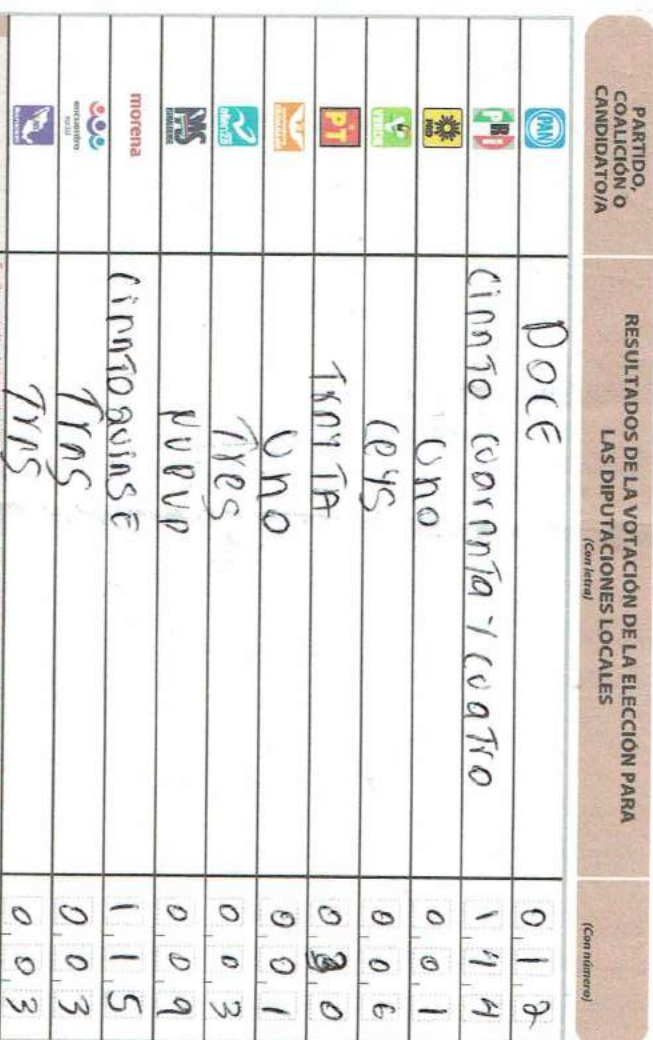 PARTIDO,
COALICIÓN O
CANDIDATO/A
RESULTADOS DE LA VOTACIÓN DE LA ELECCIÓN PARA
LAS DIPUTACIONES LOCALES
(Con letra)
(Con número)
PAN DOCE 012
PRI CinnTo cuarenta y cuatro 144
PRD Uno 001
VERDE CeYS 006
PT TRAYTA 030
Uno 001
alianza Tres 003
MS NUEVE 009
morena CinnToQuinSE 115
encuentro social Tres 003
Tres 003